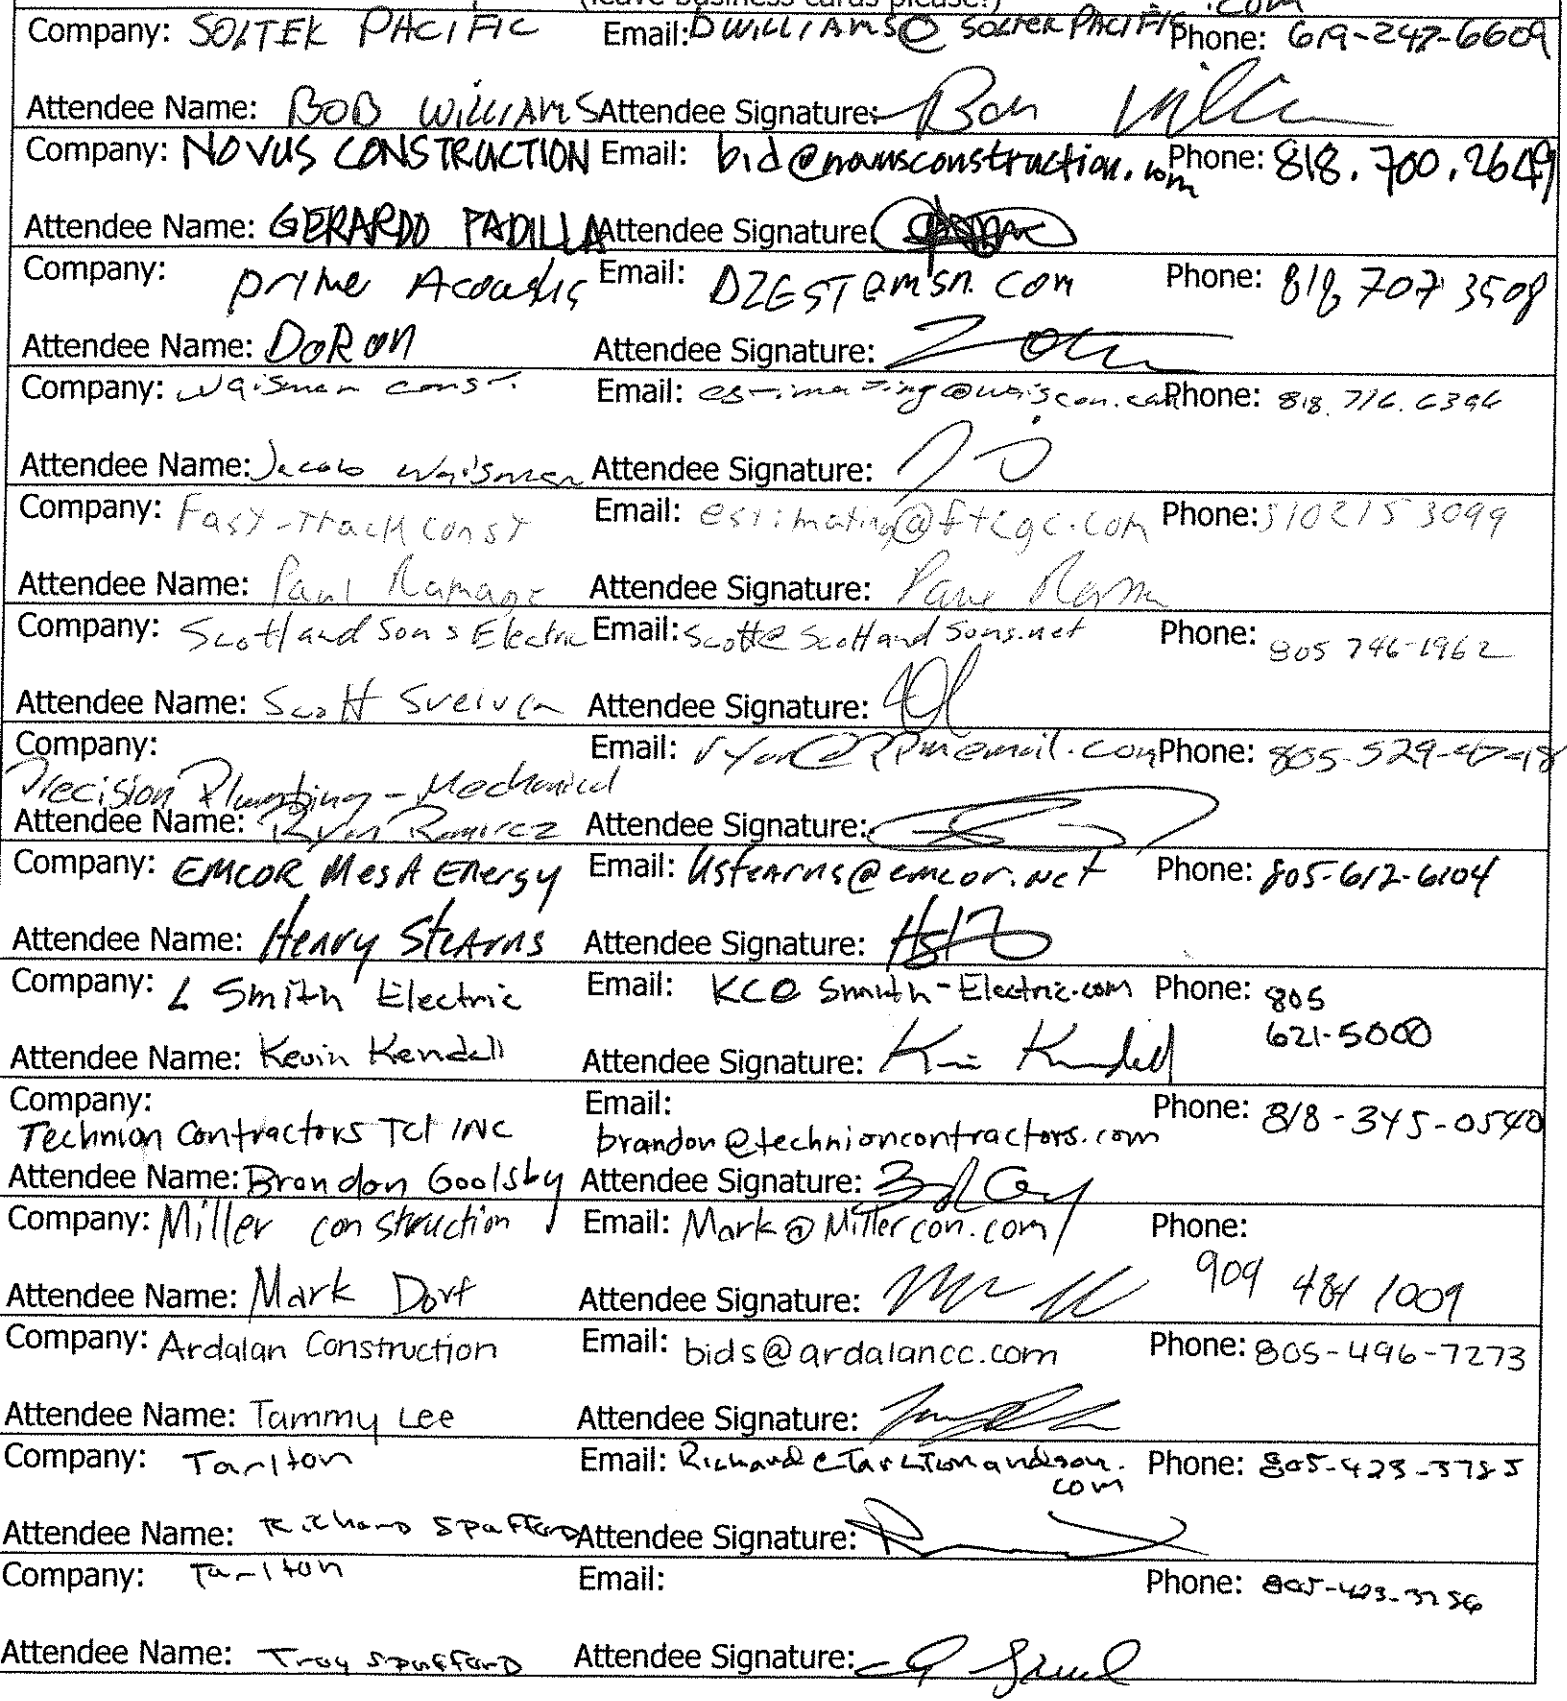 (leave business cards please!)
Company: SOLTEK PACIFIC Email: DWILLIAMS@SOLTEKPACIFIC.COM Phone: 619-247-6609
Attendee Name: BOB WILLIAMS Attendee Signature:
Company: NOVUS CONSTRUCTION Email: bid@novusconstruction.com Phone: 818.700.2649
Attendee Name: GERARDO PADILLA Attendee Signature:
Company: prime Acoustis Email: DZEST@msn.com Phone: 818 707 3508
Attendee Name: DORON Attendee Signature:
Company: Waisman const. Email: estimating@waiscon.com Phone: 818.716.6396
Attendee Name: Jacob Waisman Attendee Signature:
Company: Fast-Track const Email: estimating@ftcgc.com Phone: 3102153099
Attendee Name: Paul Ramage Attendee Signature:
Company: Scott and Sons Electric Email: Scott@ScottandSons.net Phone: 805 746-1962
Attendee Name: Scott Attendee Signature:
Company: Precision Plumbing-Mechanical Email: ryan@ppmemail.com Phone: 805-529-4748
Attendee Name: Ryan Ramirez Attendee Signature:
Company: EMCOR MESA Energy Email: Hstearns@emcor.net Phone: 805-612-6104
Attendee Name: Henry Stearns Attendee Signature:
Company: L Smith Electric Email: KC@Smith-Electric.com Phone: 805
621-5000
Attendee Name: Kevin Kendall Attendee Signature: Kendall
Company: Email: Phone: 818-345-0540
Technion Contractors TCI INC brandon@technioncontractors.com
Attendee Name: Brandon Goolsby Attendee Signature:
Company: Miller construction Email: Mark@Millercon.com Phone:
909 484 1009
Attendee Name: Mark Dorf Attendee Signature:
Company: Ardalan Construction Email: bids@ardalancc.com Phone: 805-496-7273
Attendee Name: Tammy Lee Attendee Signature:
Company: Tarlton Email: Richard@Tarltonandson.com Phone: 805-423-3785
Attendee Name: Richard Spafford Attendee Signature:
Company: Tarlton Email: Phone: 805-423-3756
Attendee Name: Troy Spafford Attendee Signature: